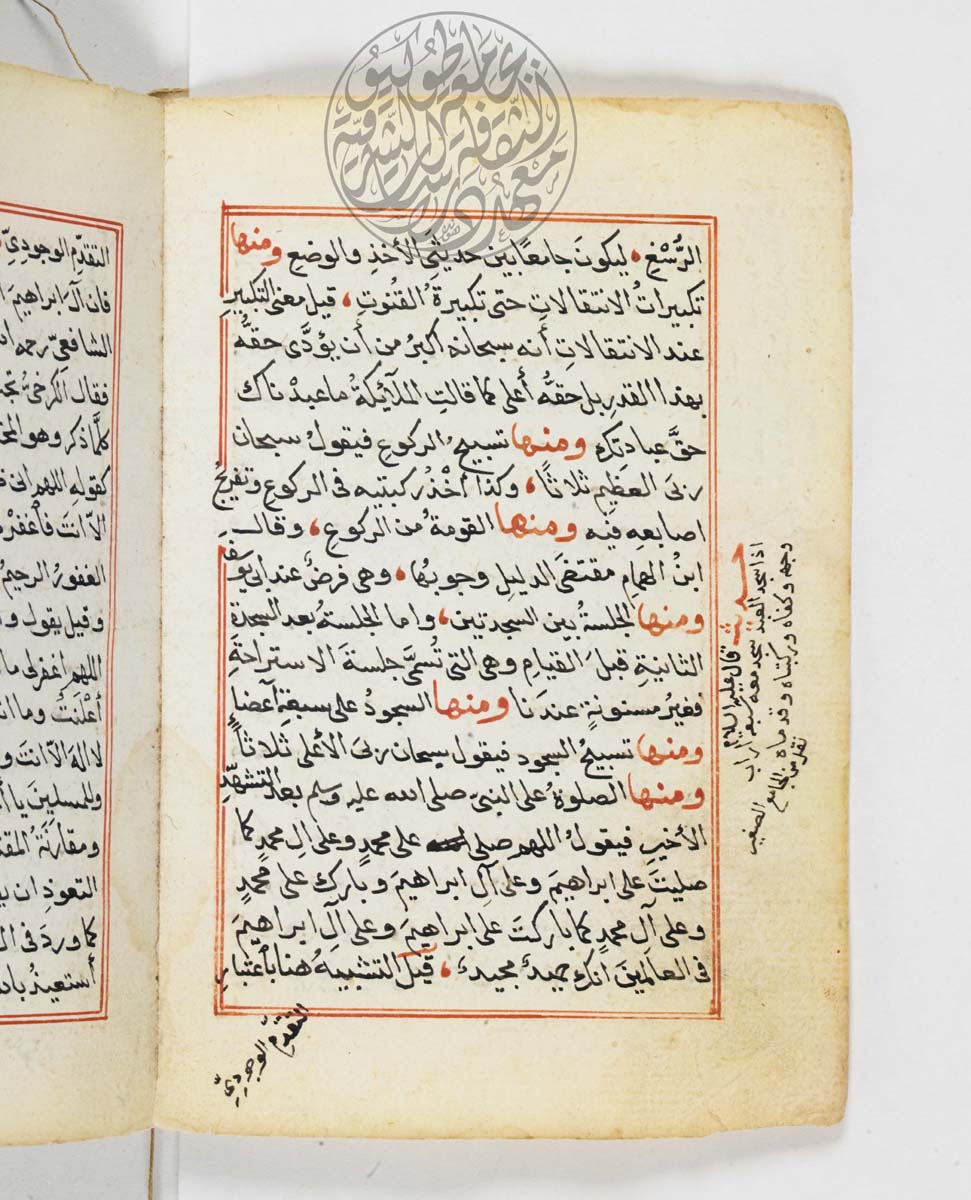 الرُّسْغِ، ليكونَ جامعًا بين حديثَي الأخذِ والوضعِ ومنها
تكبيراتُ الانتقالاتِ حتى تكبيرةُ القنوتِ، قيل معنى التكبيرِ
عند الانتقالاتِ أنه سبحانه اكبرُ من أن يؤدَّى حقُّه
بهذا القدرِ بل حقُّه أعلى كما قالتِ الملآئكةُ ما عبدناك
حقَّ عبادتك ومنها تسبيحُ الركوعِ فيقولُ سبحان
ربىَ العظيمِ ثلاثاً، وكذا أخذُ ركبتيه فى الركوعِ وتفريجُ
اصابعهِ فيه ومنها القومةُ من الركوعِ، وقال
ابنُ الهمامِ مقتضَى الدليلِ وجوبُها، وهى فرضٌ عند ابى يوسف
ومنها الجلسةُ بين السجدتين، واما الجلسةُ بعد السجدة
الثانيةِ قبلَ القيامِ وهى التى تُسمَّى جلسةَ الاستراحةِ
فغيرُ مسنونةٍ عندنا ومنها السجودُ على سبعةِ أعضآءٍ
ومنها تسبيحُ السجود فيقول سبحان ربىَ الأعلى ثلاثاً
ومنها الصلوةُ على النبىّ صلى الله عليه وسلم بعد التشهّدِ
الأخيرِ فيقولُ اللهم صلى على محمدٍ وعلى آلِ محمدٍ كما
صليتَ على ابراهيمَ وعلى آلِ ابراهيمَ وبارك على محمدٍ
وعلى آلِ محمدٍ كما باركتَ على ابراهيمَ وعلى آلِ ابراهيمَ
فى العالمينَ انك حميدٌ مجيدٌ، قيل التشبيه هنا بأعتبارِ
التقدّمِ الوجودِىّ
حديث
قال عليه السلام
اذا سجد العبد سجد معه سبعة آراب
وجهه وكفاه وركبتاه وقدماه
نقل من الجامع الصغير
التقدّمِ الوجودِىّ
فان آلَ ابراهيمَ
الشافعىّ رحمه
فقال الكرخىُّ
كلَّما ذكر وهو
كقولهِ اللهم انى
الاّ انتَ فأغفرْ
الغفورُ الرحيمُ
وقيل يقول
اللهم اغفرلى ما
أعْلَنتُ وما
لا اله الاّ انتَ
والمسلمينَ يا
ومقارنةُ
التعوذِ ان
كما وردَ فى
أستعيذُ
معهد الثقافة والدراسات الشرقية
جامعة طوكيو